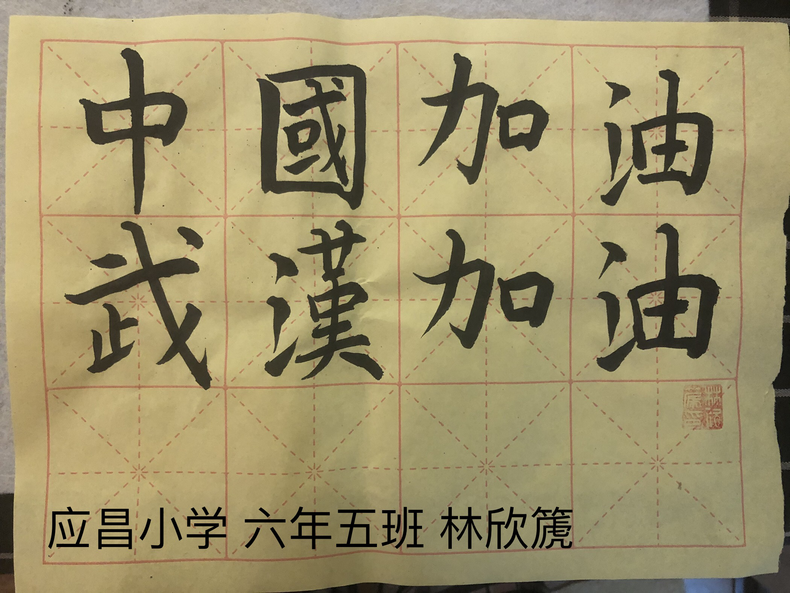 中國加油
武漢加油
应昌小学 六年五班 林欣篪